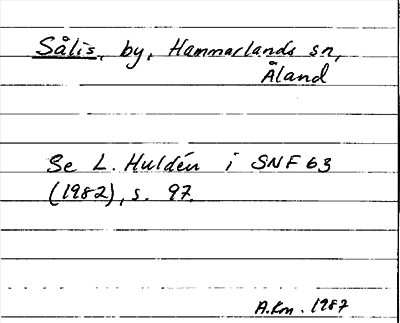 Sålis, by, Hammarlands sn,
Åland
Se L. Huldén i SNF 63
(1982), s. 97.
A.Km. 1987